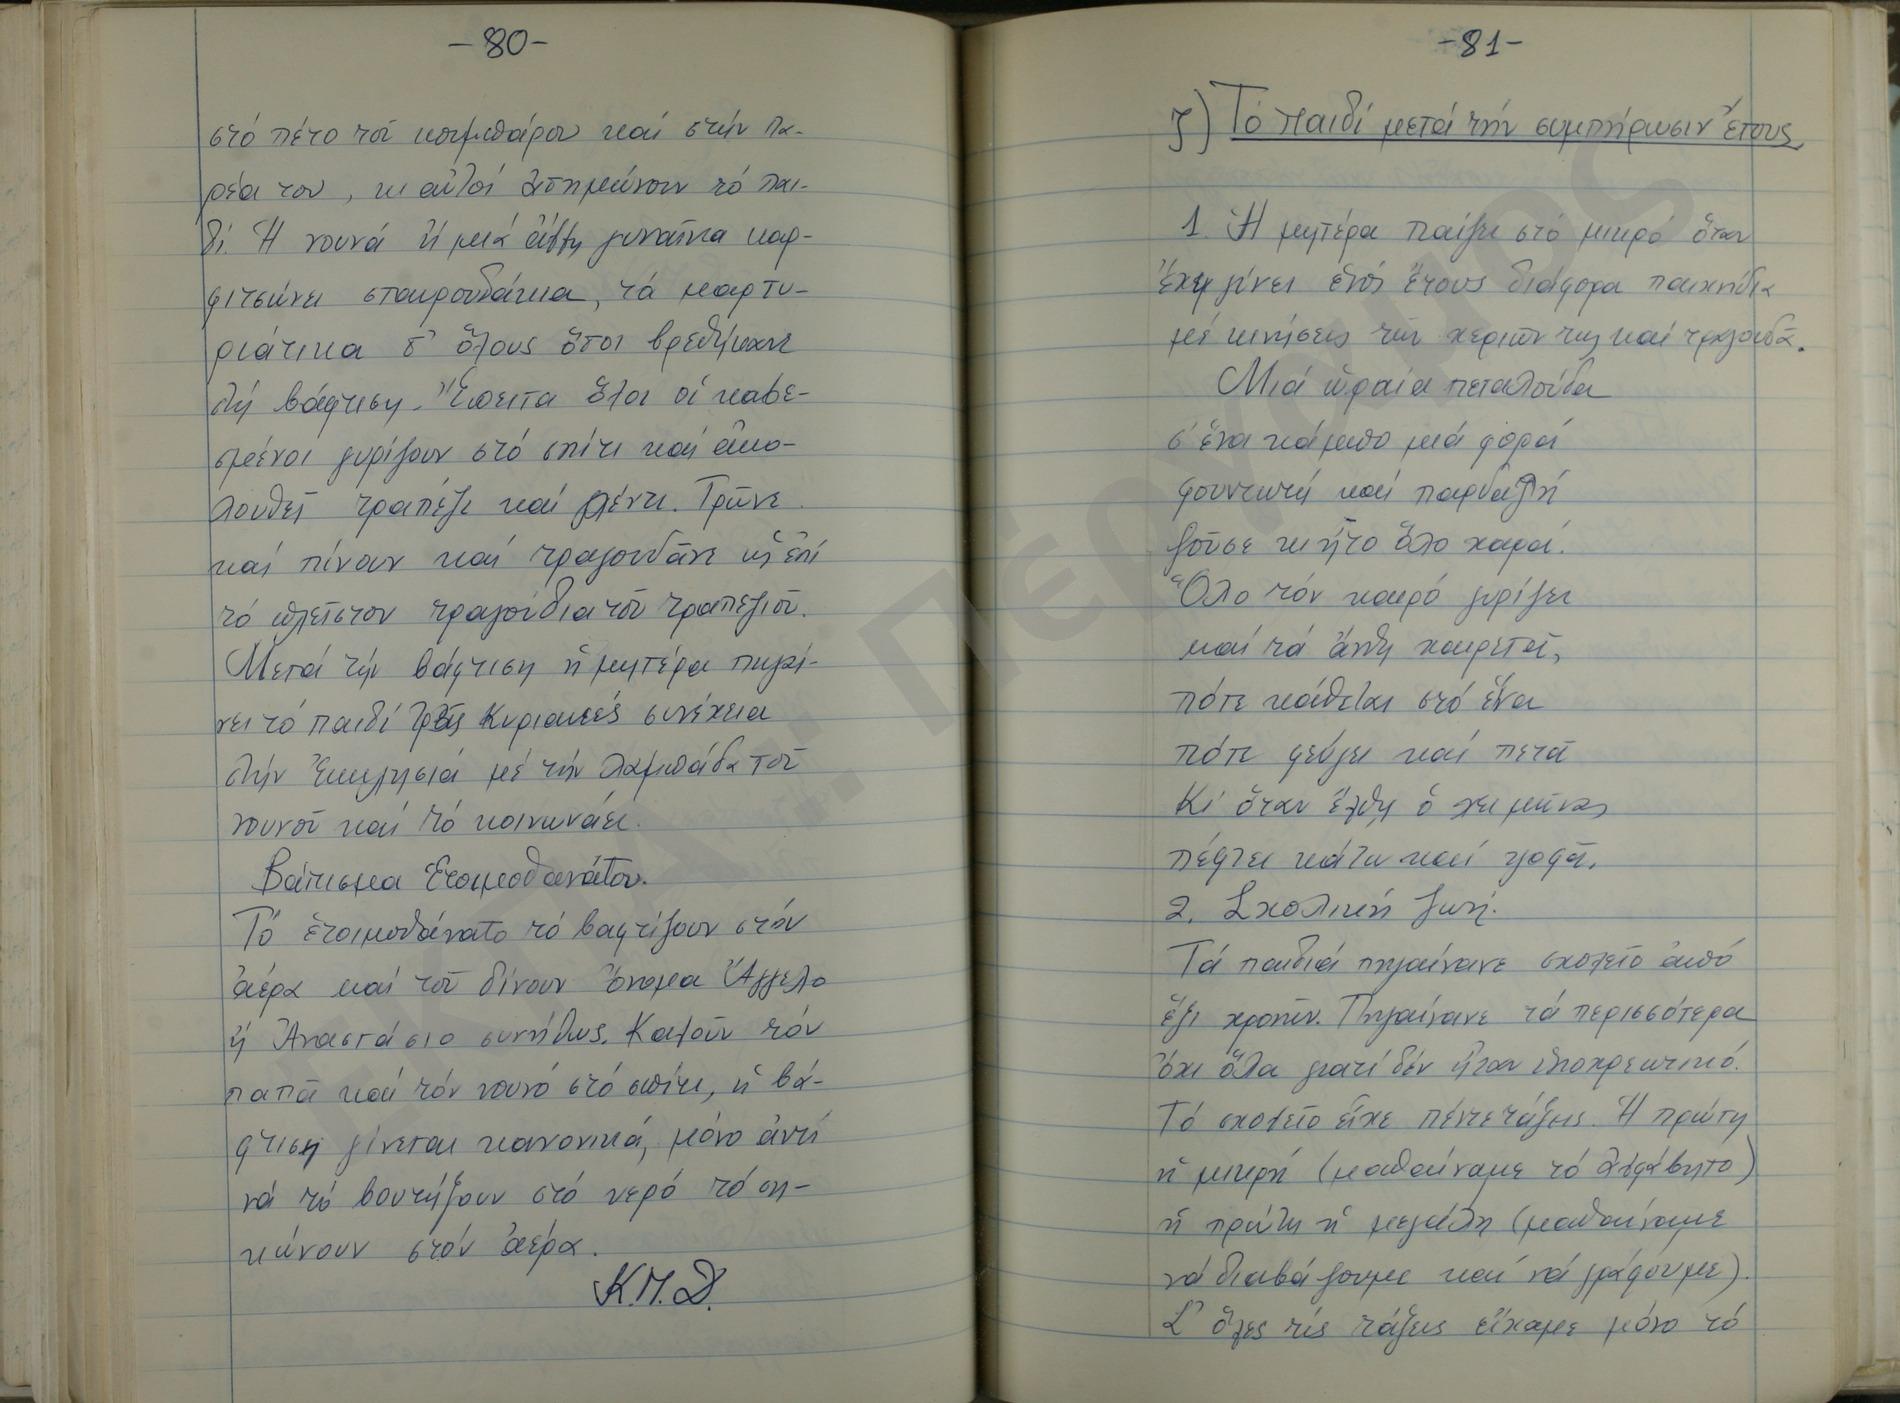 -80-
στό πέτο τοῦ κουμπάρου καί στήν πα-
ρέα του, κι αὐτοί ἀσημώνουν τό παι-
δί. Ἡ νουνά ἤ μιά ἄλλη γυναῖκα καρ-
φιτσώνει σταυρουδάκια, τά μαρτυ-
ριάτικα σ' ὅλους ὅσοι βρεθήκανε
στή βάφτιση. Ἔπειτα ὅλοι οἱ καλε-
σμένοι γυρίζουν στό σπίτι καί ἀκο-
λουθεῖ τραπέζι καί γλέντι. Τρῶνε
καί πίνουν καί τραγουδᾶνε ὡς ἐπί
τό πλεῖστον τραγούδια τοῦ τραπεζιοῦ.
Μετά τήν βάφτιση ἡ μητέρα πηγαί-
νει τό παιδί τρεῖς Κυριακές συνέχεια
στήν Ἐκκλησιά μέ τήν λαμπάδα τοῦ
νουνοῦ καί τό κοινωνάει.
Βάπτισμα Ἑτοιμοθανάτου.
Τό ἑτοιμοθάνατο τό βαφτίζουν στόν
ἀέρα καί τοῦ δίνουν ὄνομα Ἄγγελο
ἤ Ἀναστάσιο συνήθως. Καλοῦν τόν
παπά καί τόν νουνό στό σπίτι, ἡ βά-
φτιση γίνεται κανονικά, μόνο ἀντί
νά τό βουτήξουν στό νερό τό ση-
κώνουν στόν ἀέρα.
Κ.Π.Δ.
-81-
ζ) Τό παιδί μετά τήν συμπλήρωσιν ἔτους
1. Ἡ μητέρα παίζει στό μικρό ὅταν
ἔχει γίνει ἑνός ἔτους διάφορα παιχνίδια
μέ κινήσεις τῶν χεριῶν της καί τραγουδᾶ.
Μιά ὡραία πεταλούδα
σ' ἕνα κάμπο μιά φορά
φουντωτή καί παρδαλή
ζοῦσε κι ἦτο ὅλο χαρά.
Ὅλο τόν καιρό γυρίζει
καί τά ἄνθη χαιρετᾶ,
πότε κάθεται στό ἕνα
πότε φεύγει καί πετᾶ
Κι ὅταν ἔλθη ὁ χειμῶνας
πέφτει κάτω καί ψοφᾶ.
2. Σχολική ζωή.
Τά παιδιά πηγαίνανε σχολεῖο ἀπό
ἕξι χρονῶν. Πηγαίνανε τά περισσότερα
ὄχι ὅλα γιατί δέν ἦταν ὑποχρεωτικό.
Τό σχολεῖο εἶχε πέντε τάξεις. Ἡ πρώτη
ἡ μικρή (μαθαίναμε τό ἀλφάβητο)
ἡ πρώτη ἡ μεγάλη (μαθαίναμε
νά διαβάζουμε καί νά γράφουμε).
Σ' ὅλες τίς τάξεις εἴχαμε μόνο τό